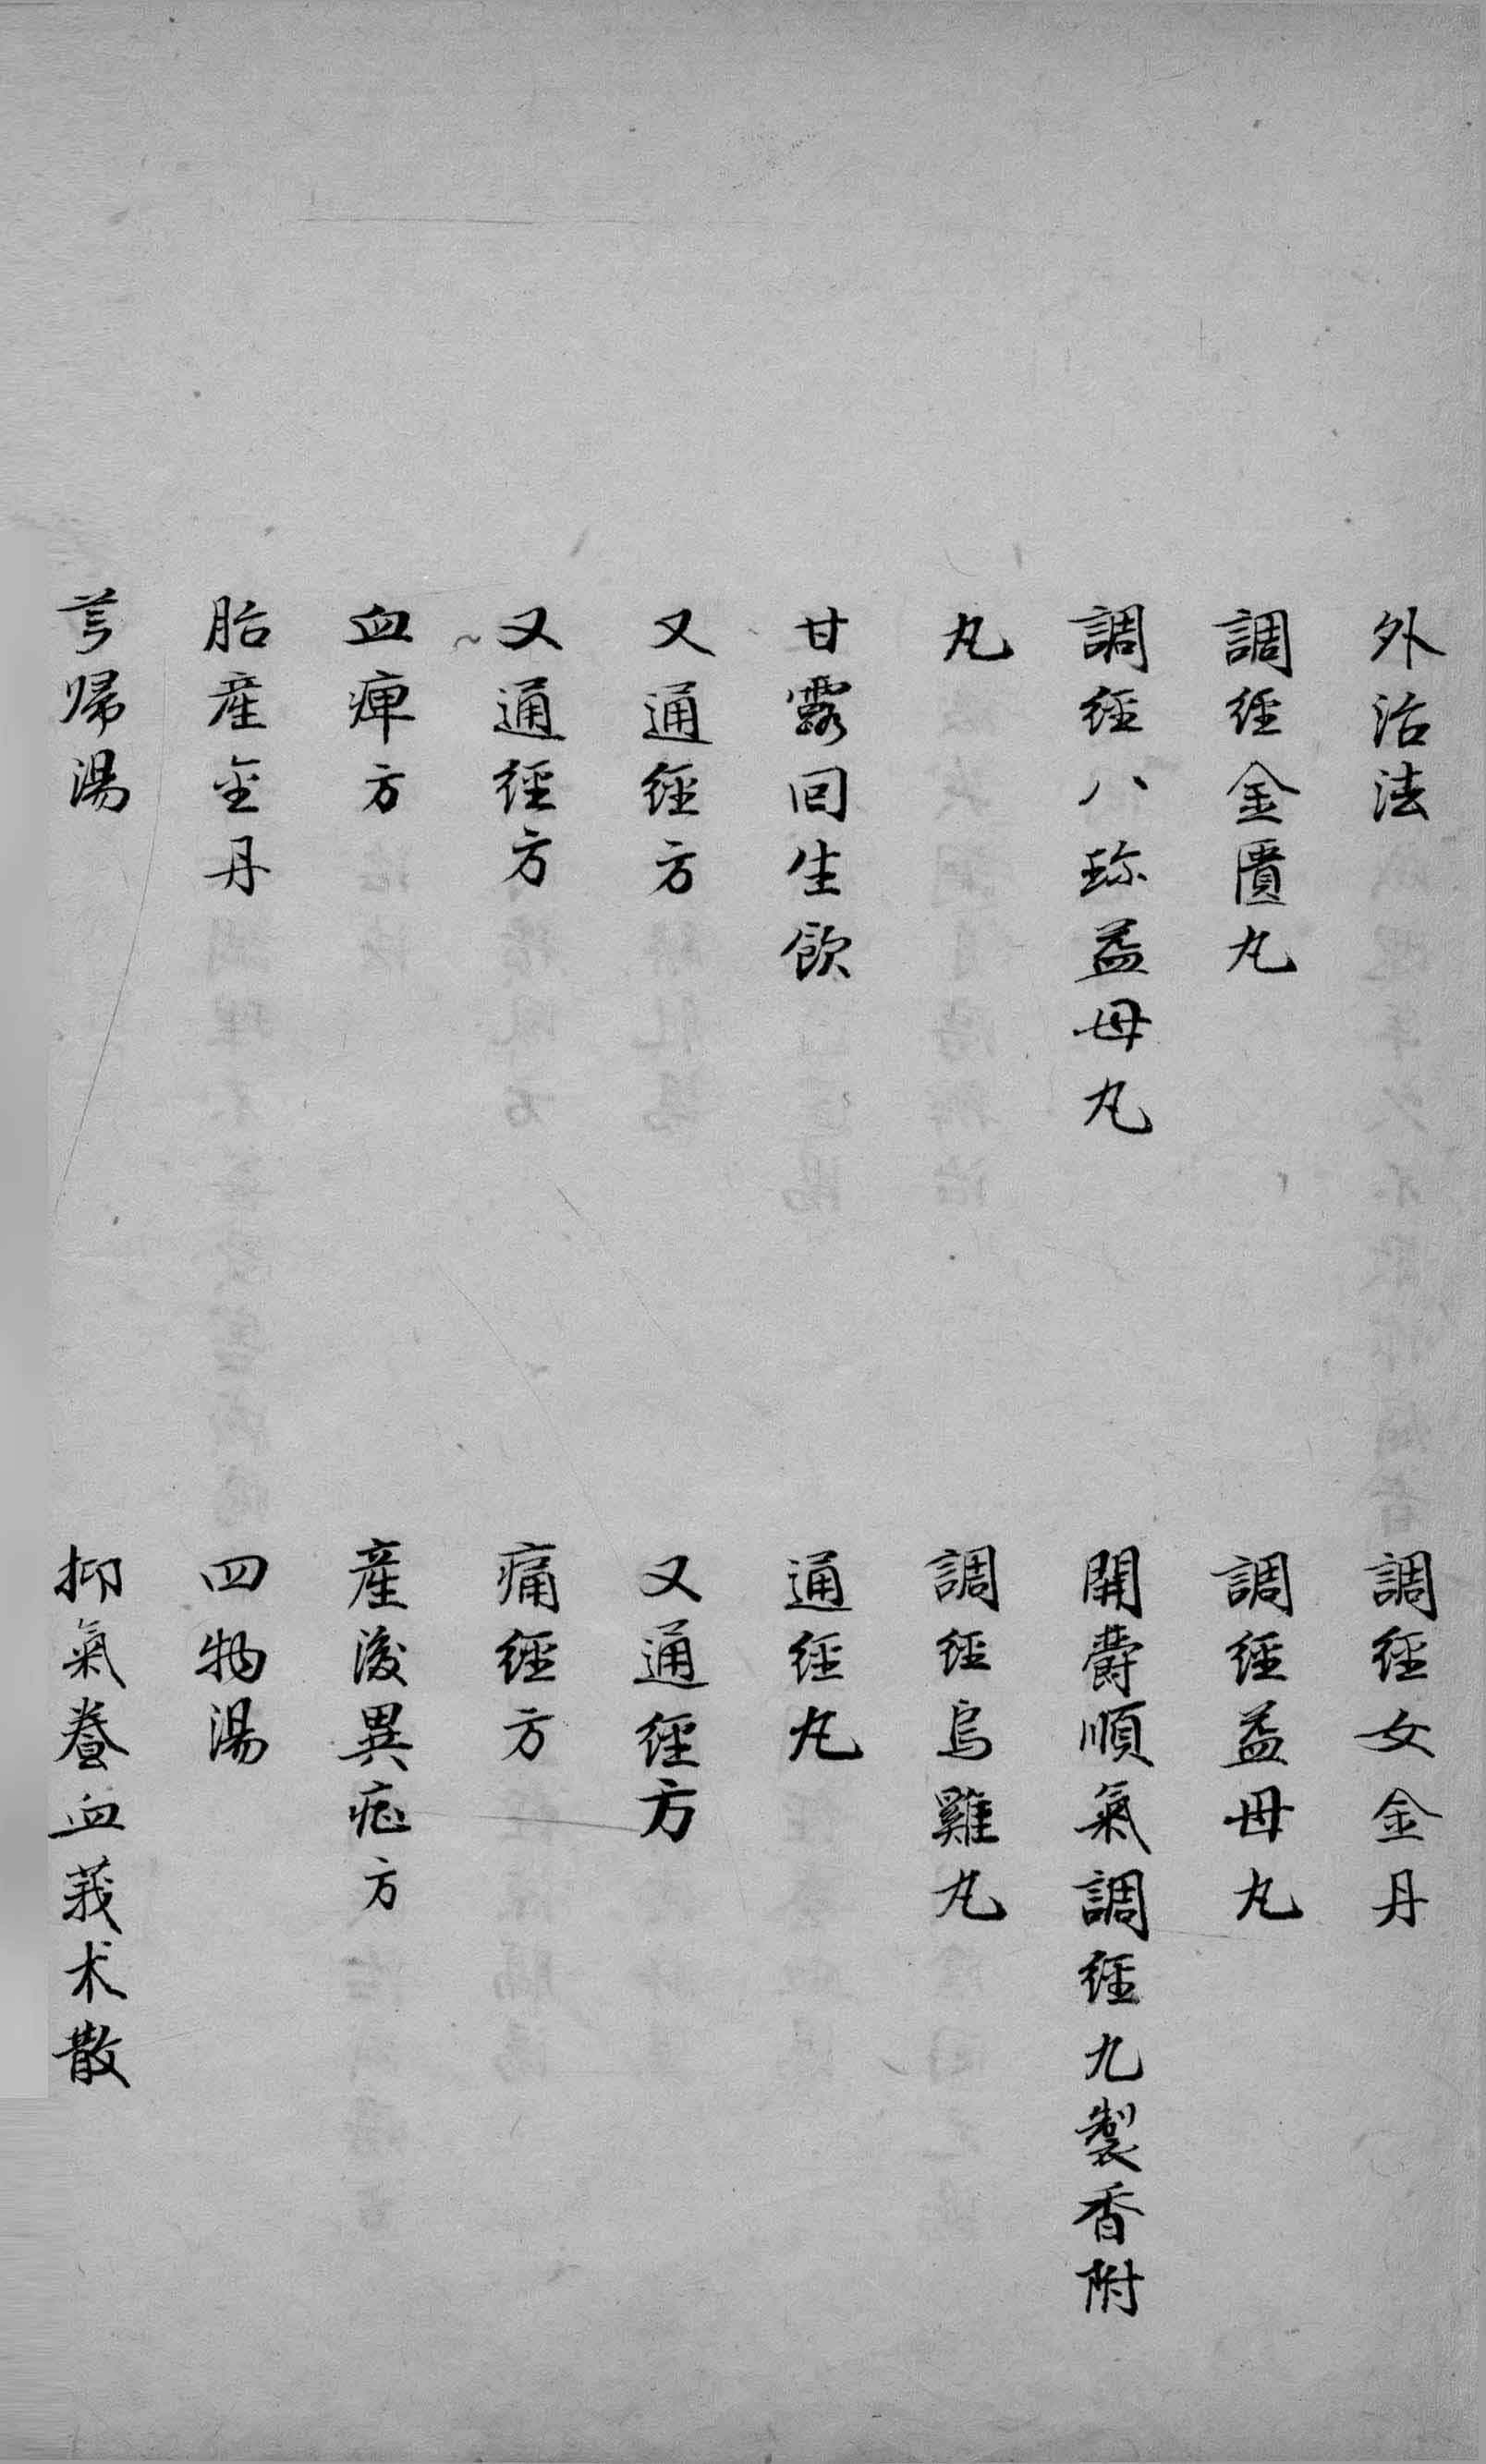 外治法　調經女金丹
調經金匱丸　調經益母丸
調經八珎益母丸　開欝順氣調經九製香附
丸　調經烏雞丸
甘露回生飲　通經丸
又通經方　又通經方
又通經方　痛經方
血痺方　產後異症方
胎產金丹　四物湯
芎歸湯　抑氣養血莪朮散